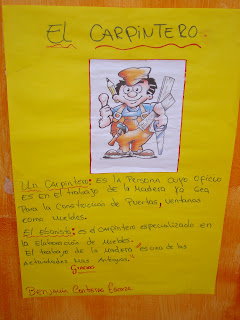 EL CARPINTERO.
Un Carpintero: es la Persona cuyo Oficio
es en el trabajo de la Madera ya Sea
Para la Construcion de Puertas, ventanas
como Muebles.
El Ebanista: es el carpintero especializado en
la Elaboración de Muebles.
El trabajo de la Madera es una de las
Actividades Mas Antiguas.
Gracias
Benjamin Contreras